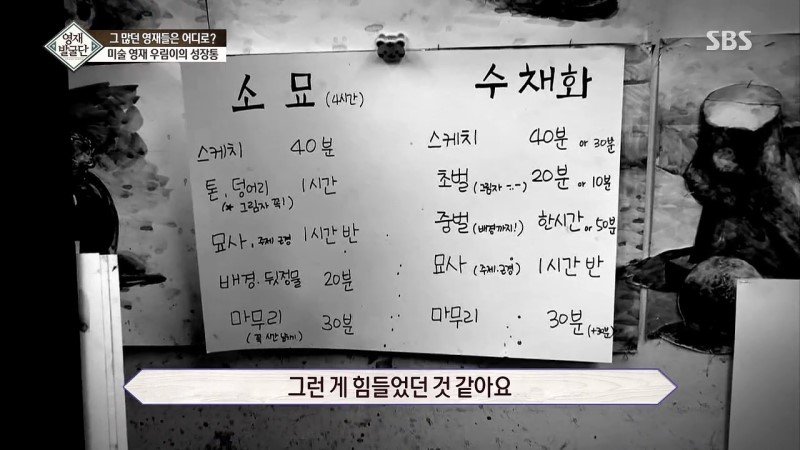 영재
발굴단
그 많던 영재들은 어디로?
미술 영재 우림이의 성장통
SBS
소묘 (4시간)
스케치 40분
톤, 덩어리 1시간
(* 그림자 꼭!)
묘사. 주제 근경 1시간 반
배경. 뒷정물 20분
마무리 30분
(꼭 시간 남기기)
수채화
스케치 40분 or 30분
초벌 (그림자 -.-) 20분 or 10분
중벌 (배경까지!) 한시간 or 50분
묘사 (주제.근경) 1시간 반
마무리 30분
그런 게 힘들었던 것 같아요